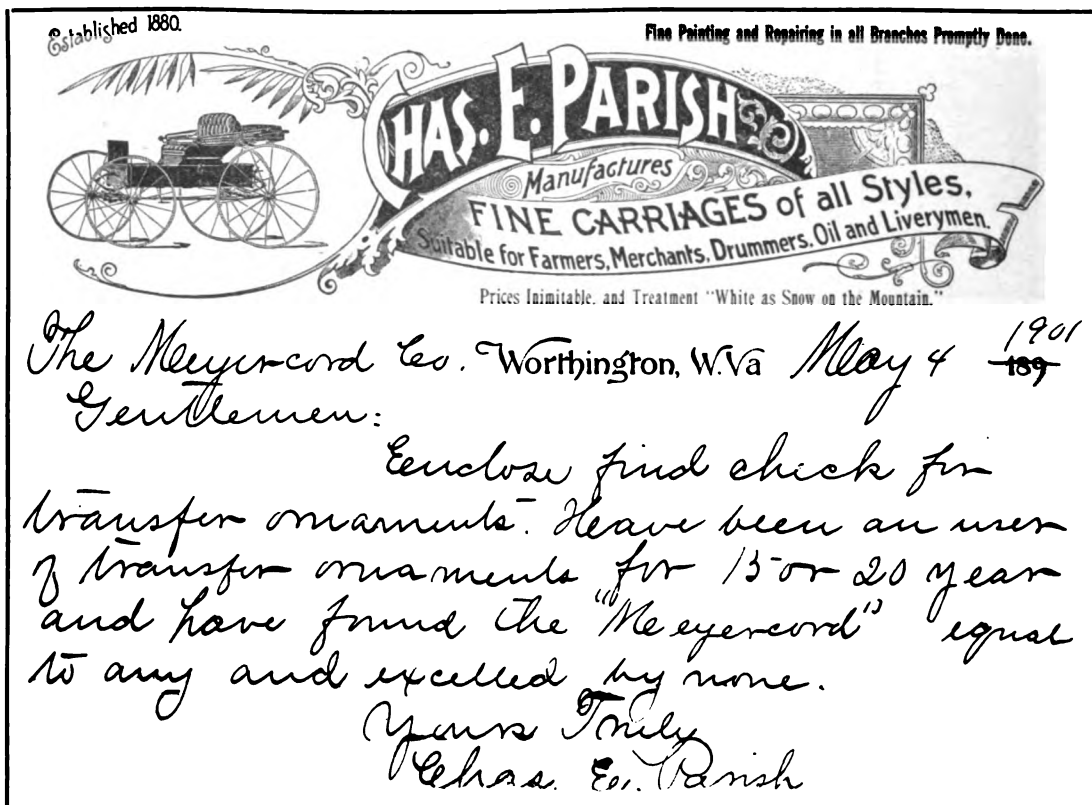 Established 1880.
Fine Painting and Repairing in all Branches Promptly Done.
CHAS. E. PARISH
Manufactures
FINE CARRIAGES of all Styles,
Suitable for Farmers, Merchants, Drummers, Oil and Liverymen.
Prices Inimitable, and Treatment "White as Snow on the Mountain."
The Meyercord Co. Worthington, W. Va May 4 1901 189
Gentlemen:
Enclose find check for
transfer ornaments. Have been an user
of transfer ornaments for 15 or 20 year
and have found the "Meyercord" equal
to any and excelled by none.
Yours Truly
Chas. E. Parish